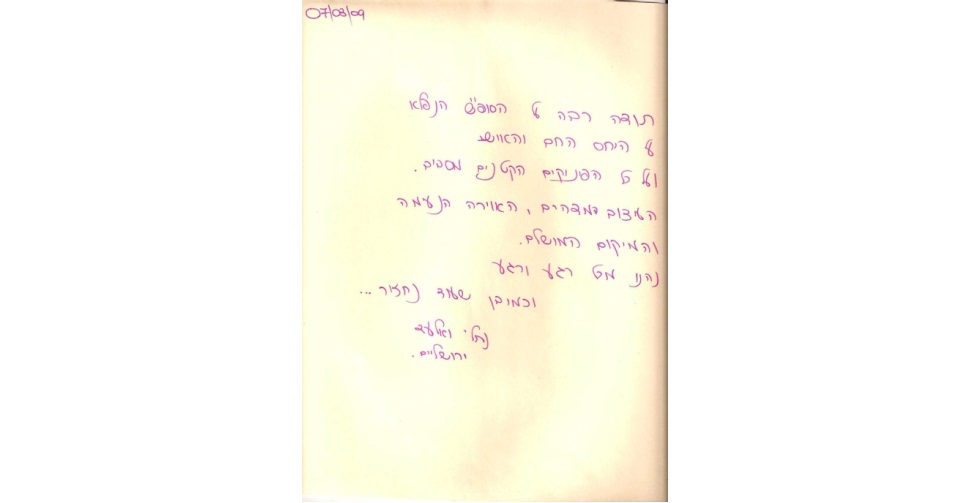 07/03/09
תודה רבה על הסופ"ש הנפלא
על היחס החם והאישי
ועל כל הפינוקים הקטנים מסביב.
העיצוב המדהים, האוירה הנעימה
והמיקום המושלם.
נהננו מכל רגע ורגע
וכמובן שעוד נחזור...
ואלעד
ירושלים.